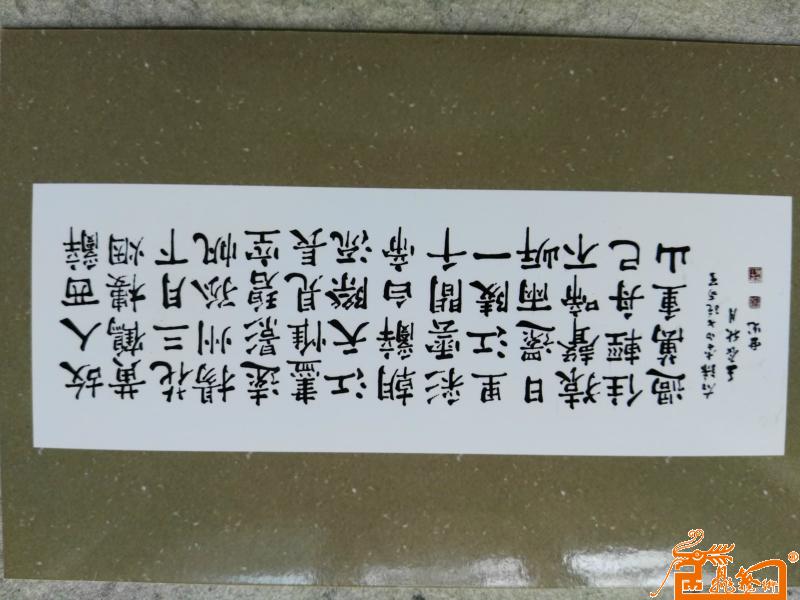 故人西辭
黃鶴樓烟
花三月下
揚州孤帆
遠影碧空
盡惟見長
江天際流
朝辭白帝
彩雲間千
里江陵一
日還兩岸
猿聲啼不
住輕舟已
過萬重山
右錄李白七絕
秋月